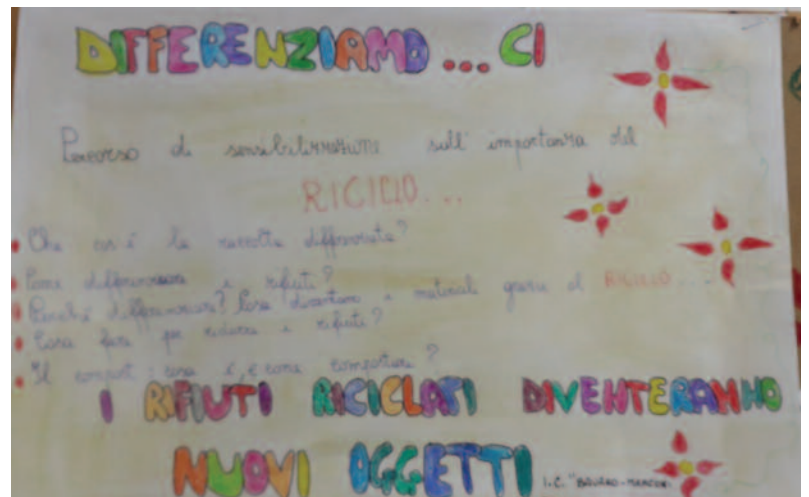 DIFFERENZIAMO ... CI
Percorso di sensibilizzazione sull' importanza del
RICICLO...
Che cos'è la raccolta differenziata?
Come differenziare i rifiuti?
Perché differenziare? Cosa diventano i materiali grazie al RICICLO...
Cosa fare per ridurre i rifiuti?
Il compost: cosa è, e come compostare?
I RIFIUTI RICICLATI DIVENTERANNO
NUOVI OGGETTI
I.C.